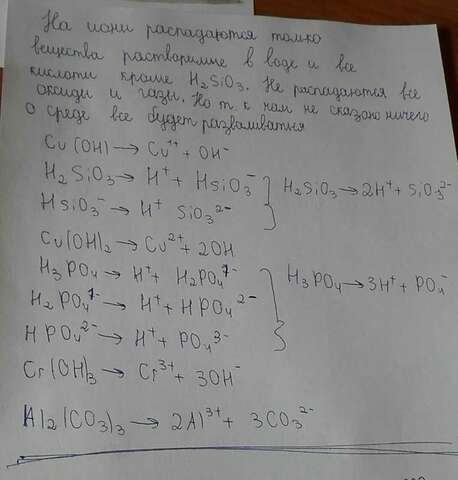 На иони распадаются толко
вещества растворимие в воде и все
кислоти кроме H₂SiO₃. Не распадаются все
оксиды и газы. Но т к нам не сказано ничего
о среде все будет разваливаться
Cu(OH) → Cu⁺ + OH⁻
H₂SiO₃ → H⁺ + HSiO₃⁻
H₂SiO₃ → 2H⁺ + SiO₃²⁻
HSiO₃⁻ → H⁺ SiO₃²⁻
Cu(OH)₂ → Cu²⁺ + 2OH
H₃PO₄ → H⁺ + H₂PO₄¹⁻
H₃PO₄ → 3H⁺ + PO₄⁻
H₂PO₄¹⁻ → H⁺ + HPO₄²⁻
HPO₄²⁻ → H⁺ + PO₄³⁻
Cr(OH)₃ → Cr³⁺ + 3OH⁻
Al₂(CO₃)₃ → 2Al³⁺ + 3CO₃²⁻